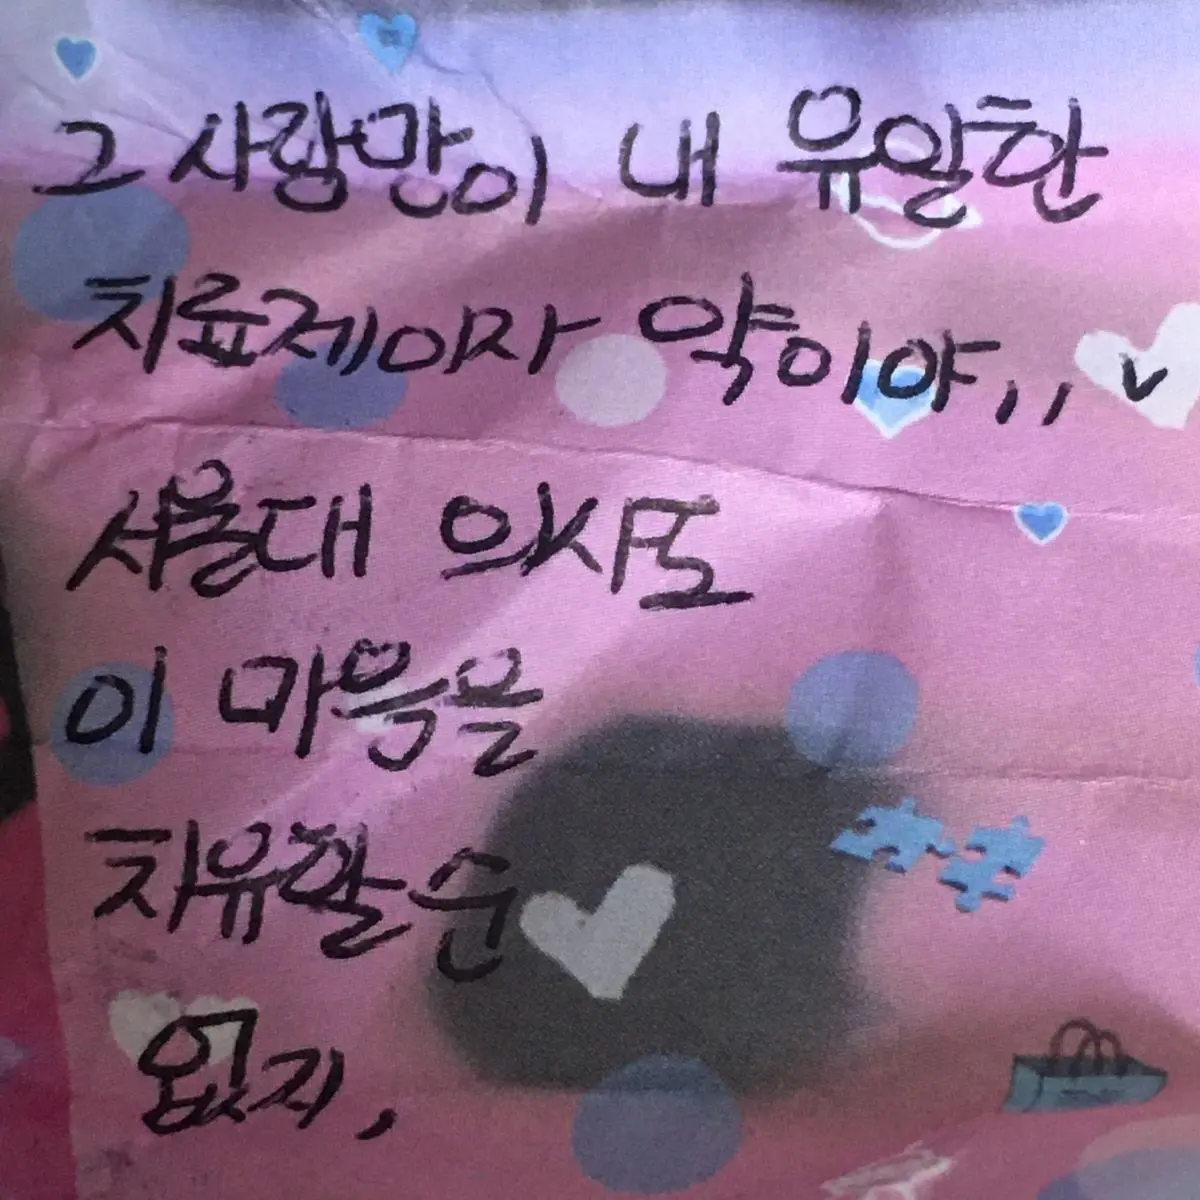 그 사랑만이 내 유일한
치료제이자 약이야,,
서울대 의사도
이 마음을
치유할 순
없지,